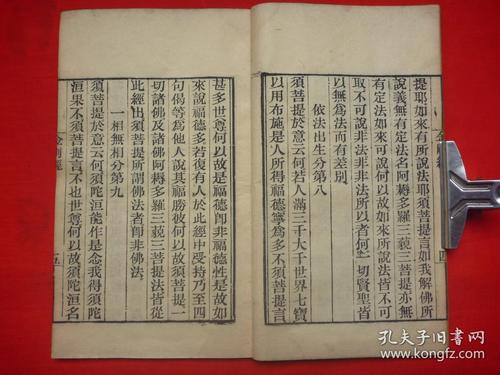 提耶如來有所說法耶須菩提言如我解佛所
說義無有定法名阿耨多羅三藐三菩提亦無
有定法如來可說何以故如來所說法皆不可
取不可說非法非非法所以者何一切賢聖皆
以無為法而有差別
依法出生分第八
須菩提於意云何若人滿三千大千世界七寶
以用布施是人所得福德寧為多不須菩提言
甚多世尊何以故是福德即非福德性是故如
來說福德多若復有人於此經中受持乃至四
句偈等為他人說其福勝彼何以故須菩提一
切諸佛及諸佛阿耨多羅三藐三菩提法皆從
此經出須菩提所謂佛法者即非佛法
一相無相分第九
須菩提於意云何須陀洹能作是念我得須陀
洹果不須菩提言不也世尊何以故須陀洹名
金剛經
四
金剛經
五
孔夫子旧书网
www.kongfz.com